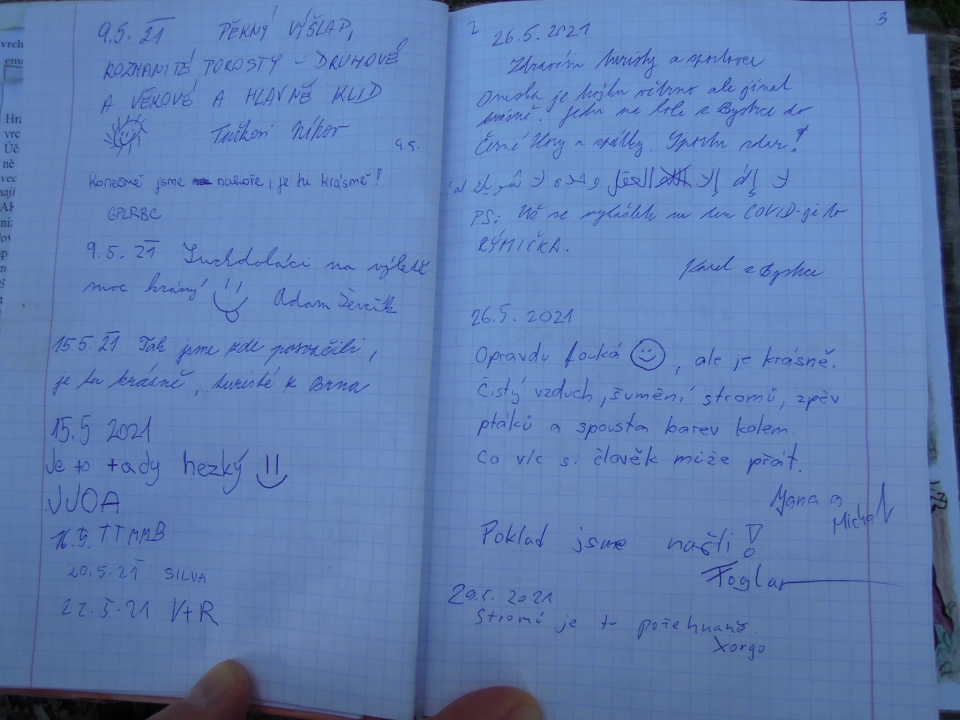 9.5.21 PĚKNÝ VÝŠLAP,
ROZMANITÉ POROSTY – DRUHOVĚ
A VĚKOVĚ A HLAVNĚ KLID
9.5.
Konečně jsme nahoře, je tu krásně!
GPLRBC
9.5.21 Suchdoláci na výletě
moc krásný
Adam Ševčík
15.5.21 Tak jsme zde posvačili,
je tu krásně, turisté z Brna
15.5 2021
Je to tady hezký
VJOA
16.5. TTMMB
20.5.21 SILVA
22.5.21 V+R
2
3
26.5.2021
Zdravím turisty a sportovce
Dneska je trošku větrno ale jinak
krásně. Jedu na kole z Bystrce do
Černé Hory a zpátky. Sportu zdar!
PS: Už se vykašlete na ten COVID-je to
RÝMIČKA.
Karel z Bystrce
26.5.2021
Opravdu fouká , ale je krásně.
Čistý vzduch, šumění stromů, zpěv
ptáků a spousta barev kolem.
Co víc si člověk může přát.
Jana a
Michal
Poklad jsme našli!
Foglar
29.5.2021
Stromů je tu požehnaně.
Xorgo